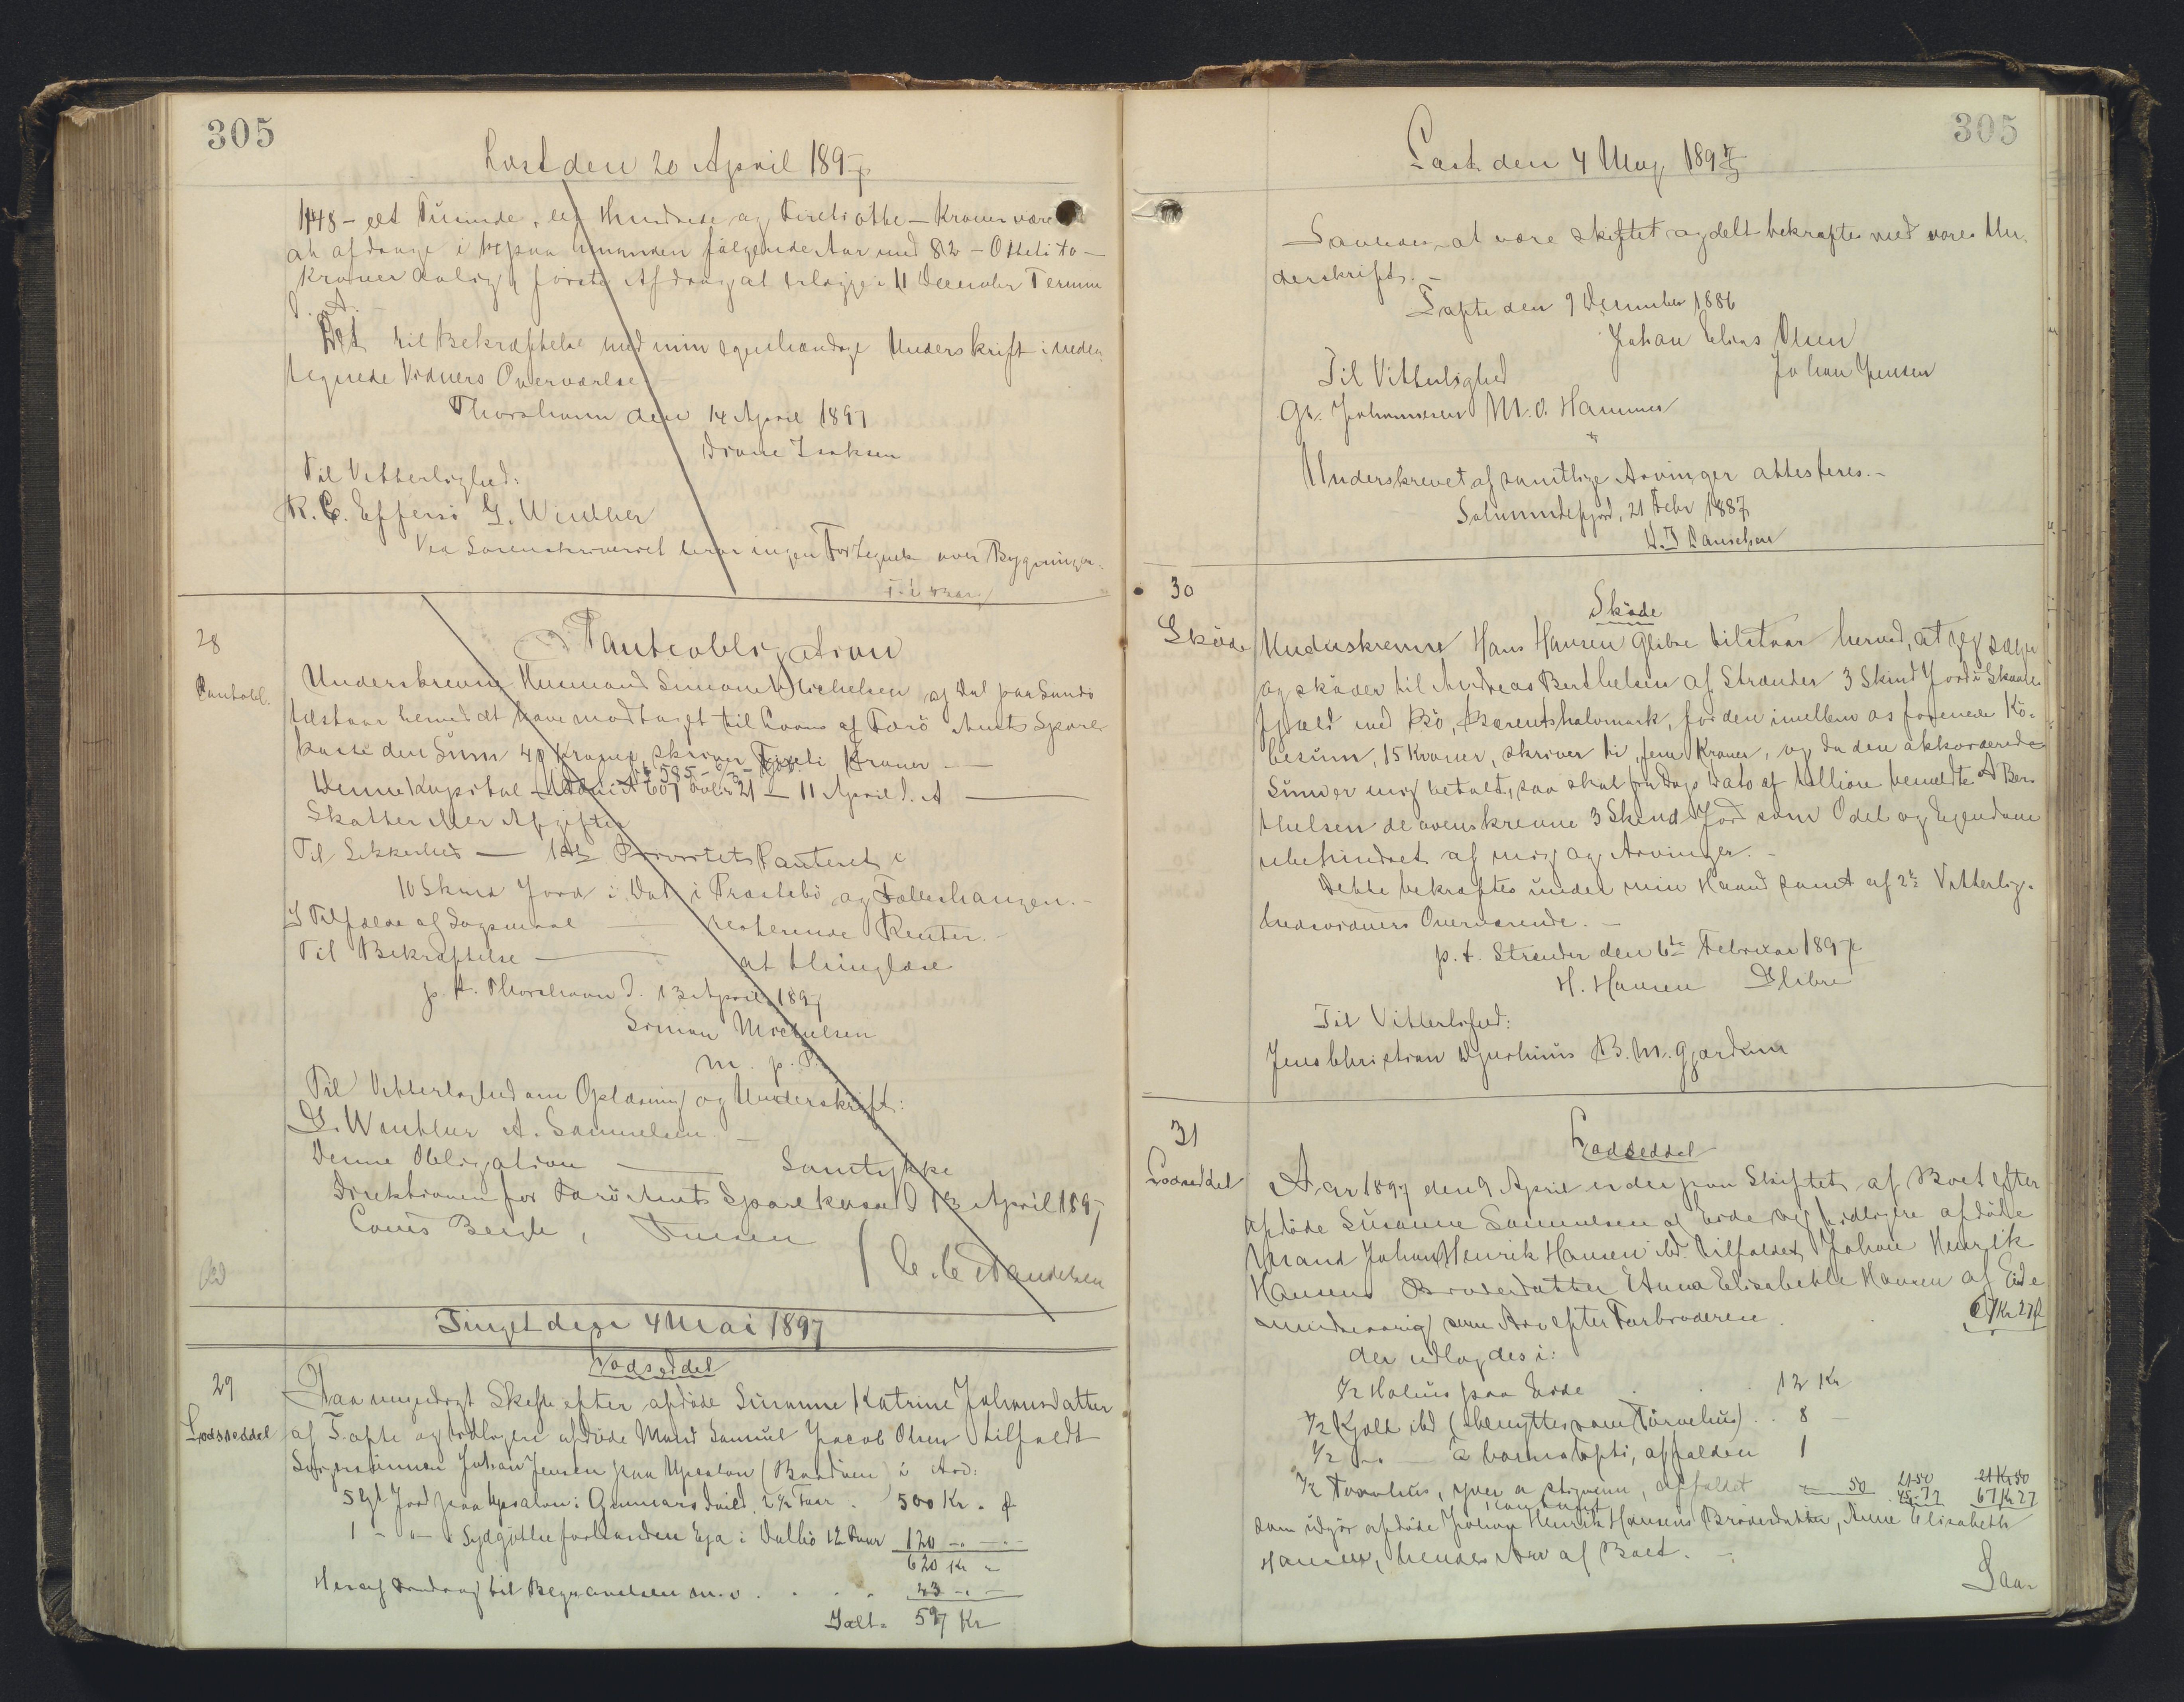 305
Læst den 20 April 1897
1148 – et Tusinde, et Hundrede og Fireti otte – Kroner være
at afdrage i 14 paa hinanden følgende Aar med 82 – Otteti to –
Kroner aarlig, første Afdrag at erlægge i 11 December Termin
d. A.
Det til Bekræftelse med min egenhændige Underskrift i neden
tegnede Vidners Overværelse.
Thorshavn den 14 April 1897
Isaksen
Til Vitterlighed:
R. C. Effersö G. Winther
Ved Sorenskriveriet beror ingen Fortegnelse over Bygninger.
28
Pantobl.
Panteobligation
Underskrevne Husmand Simon Michelsen af Dal paa Sandö
tilstaar herved at have modtaget til Laans af Færö Amts Spare
kasse den Sum 40 Kroner, skriver Fireti Kroner –
Denne Kapital – 11 April d. A –
Skatter eller Afgifter
Til Sikkerhed – 1ste Prioritets Panteret i
10 Skind Jord i Dal i Præstebö og Fælleshaugen. –
I Tilfælde af Søgsmaal – resterende Renter. –
Til Bekræftelse – at thinglæse
p. t. Thorshavn d. 13 April 1897
Simon Michelsen
m. p. P.
Til Vitterlighed om Oplæsning og Underskrift:
G. Winther A. Samuelsen –
Denne Obligation – Samtykke
Direktionen for Færö Amts Sparekasse d 13 April 1897
Louis Bergh, Finsen / C. C. Danielsen
Tinget den 4 Mai 1897
29
Lodseddel
Lodseddel
Paa mindeligt Skifte efter afdöde Susanne Katrine Johansdatter
af Tofte og tidligere afdöde Mand Samuel Jacob Olsen tilfaldt
Johan Jensen paa i Arv:
5 Gl Jord paa i 2½ Faar . 500 Kr. „
1 – „ – i 12 Faar 120 – „ –
620 Kr „
Heraf Fradrag til Begravelsen m. v. . . . 23 – „ –
Ialt. 597 Kr
305
Læst den 4 May 1897
Saaledes at være skiftet og delt bekræftes med vores Un-
derskrift. –
Tofte den 9 December 1886
Johan Elias Olsen
Til Vitterlighed Johan Jensen
Gr. Johannesen M. O. Hammer
Underskrevet af samtlige Arvinger attesteres. –
Solmundefjord, 21 Febr 1887
Danielsen
30
Skøde
Skøde
Underskrevne Hans Hansen Glibre tilstaar herved, at jeg sælger
og skøder til Andreas Berthelsen af Strænder 3 Skind Jord i Skaale
fjæld med Bö, Bærentshalvmark, for den imellem os forenede Kö-
besum, 15 Kroner, skriver ti, fem Kroner, og da den akkorderede
Sum er mig betalt, saa skal fra Dags Dato af tilhøre bemeldte A Ber
thelsen de ovenskrevne 3 Skind Jord som Odel og Ejendom
ubehindret af mig og Arvinger. –
Dette bekræftes under min Haand samt af 2de Vitterlig-
hedsvidners Overværende. –
p. t. Strender den 6te Februar 1897
H. Hansen Glibre
Til Vitterlighed:
Jens Christian Djurhuus B. M. Gjardum
31
Lodseddel
Lodseddel
Aar 1897 den 9 April er der paa Skiftet af Boet efter
afdöde Susanne Samuelsen af Eide og tidligere afdöde
Mand Johan Henrik Hansen ibd tilfaldet Johan Henrik
Hansens Broderdatter Anna Elisabethe Hansen af Eide
som Arv efter Farbroderen . . 67 Kr 27 Ø
der udlagdes i:
1/2 paa Eide . . . 12 Kr
1/2 Kjald ibd (benyttes som Törvehus) . . 8 –
1/2 do – à , affalden 1
1/2 , affaldet – „ 50 21-50 21 Kr 50
contant 45-77 67 Kr 27
som udgör afdöde Johan Henrik Hansens Broderdatter, Anne Elisabeth
Hansen, hendes Arv af Boet. –
Saa-